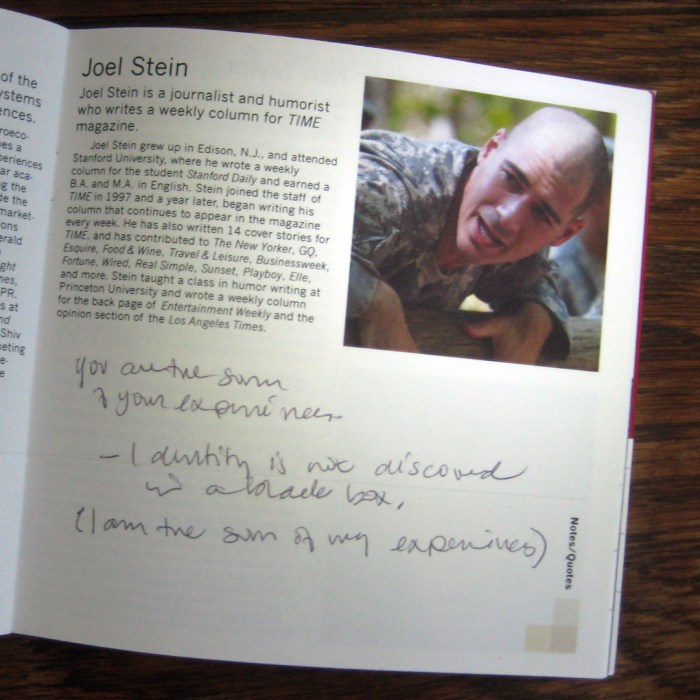 of the
ystems
ences.
roeco-
es a
periences
ar aca-
g the
de the
market-
ons
erald
ght
nes,
PR.
s at
nd
Shiv
eting
e-
e
Joel Stein
Joel Stein is a journalist and humorist
who writes a weekly column for TIME
magazine.
Joel Stein grew up in Edison, N.J., and attended
Stanford University, where he wrote a weekly
column for the student Stanford Daily and earned a
B.A. and M.A. in English. Stein joined the staff of
TIME in 1997 and a year later, began writing his
column that continues to appear in the magazine
every week. He has also written 14 cover stories for
TIME, and has contributed to The New Yorker, GQ,
Esquire, Food & Wine, Travel & Leisure, Businessweek,
Fortune, Wired, Real Simple, Sunset, Playboy, Elle,
and more. Stein taught a class in humor writing at
Princeton University and wrote a weekly column
for the back page of Entertainment Weekly and the
opinion section of the Los Angeles Times.
you are the sum
of your experiences
- Identity is not discovered
in a black box.
(I am the sum of my experiences)
Notes/Quotes